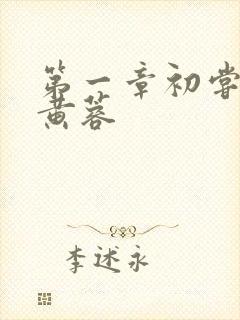 第一章初尝
黄蓉
李述永